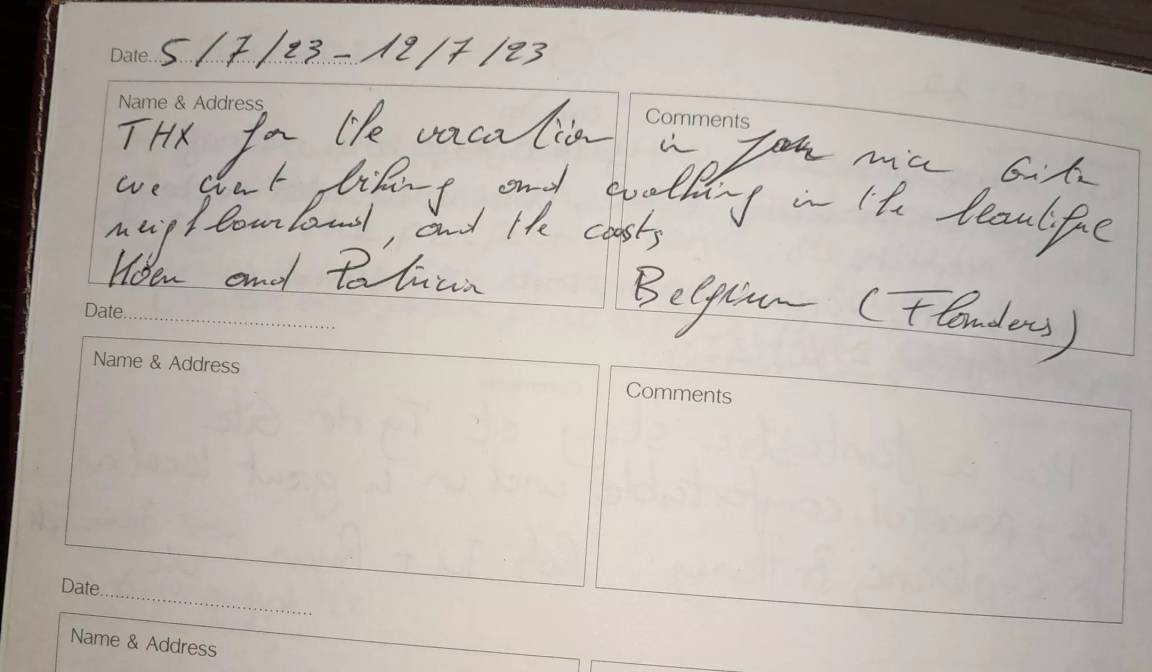 Date 5/7/23 - 12/7/23
Name & Address
Comments
THX for the vacation in your nice Gite
we went biking and walking in the beautiful
neighbourhood, and the coasts
Koen and Patricia Belgium (Flanders)
Date
Name & Address
Comments
Date
Name & Address